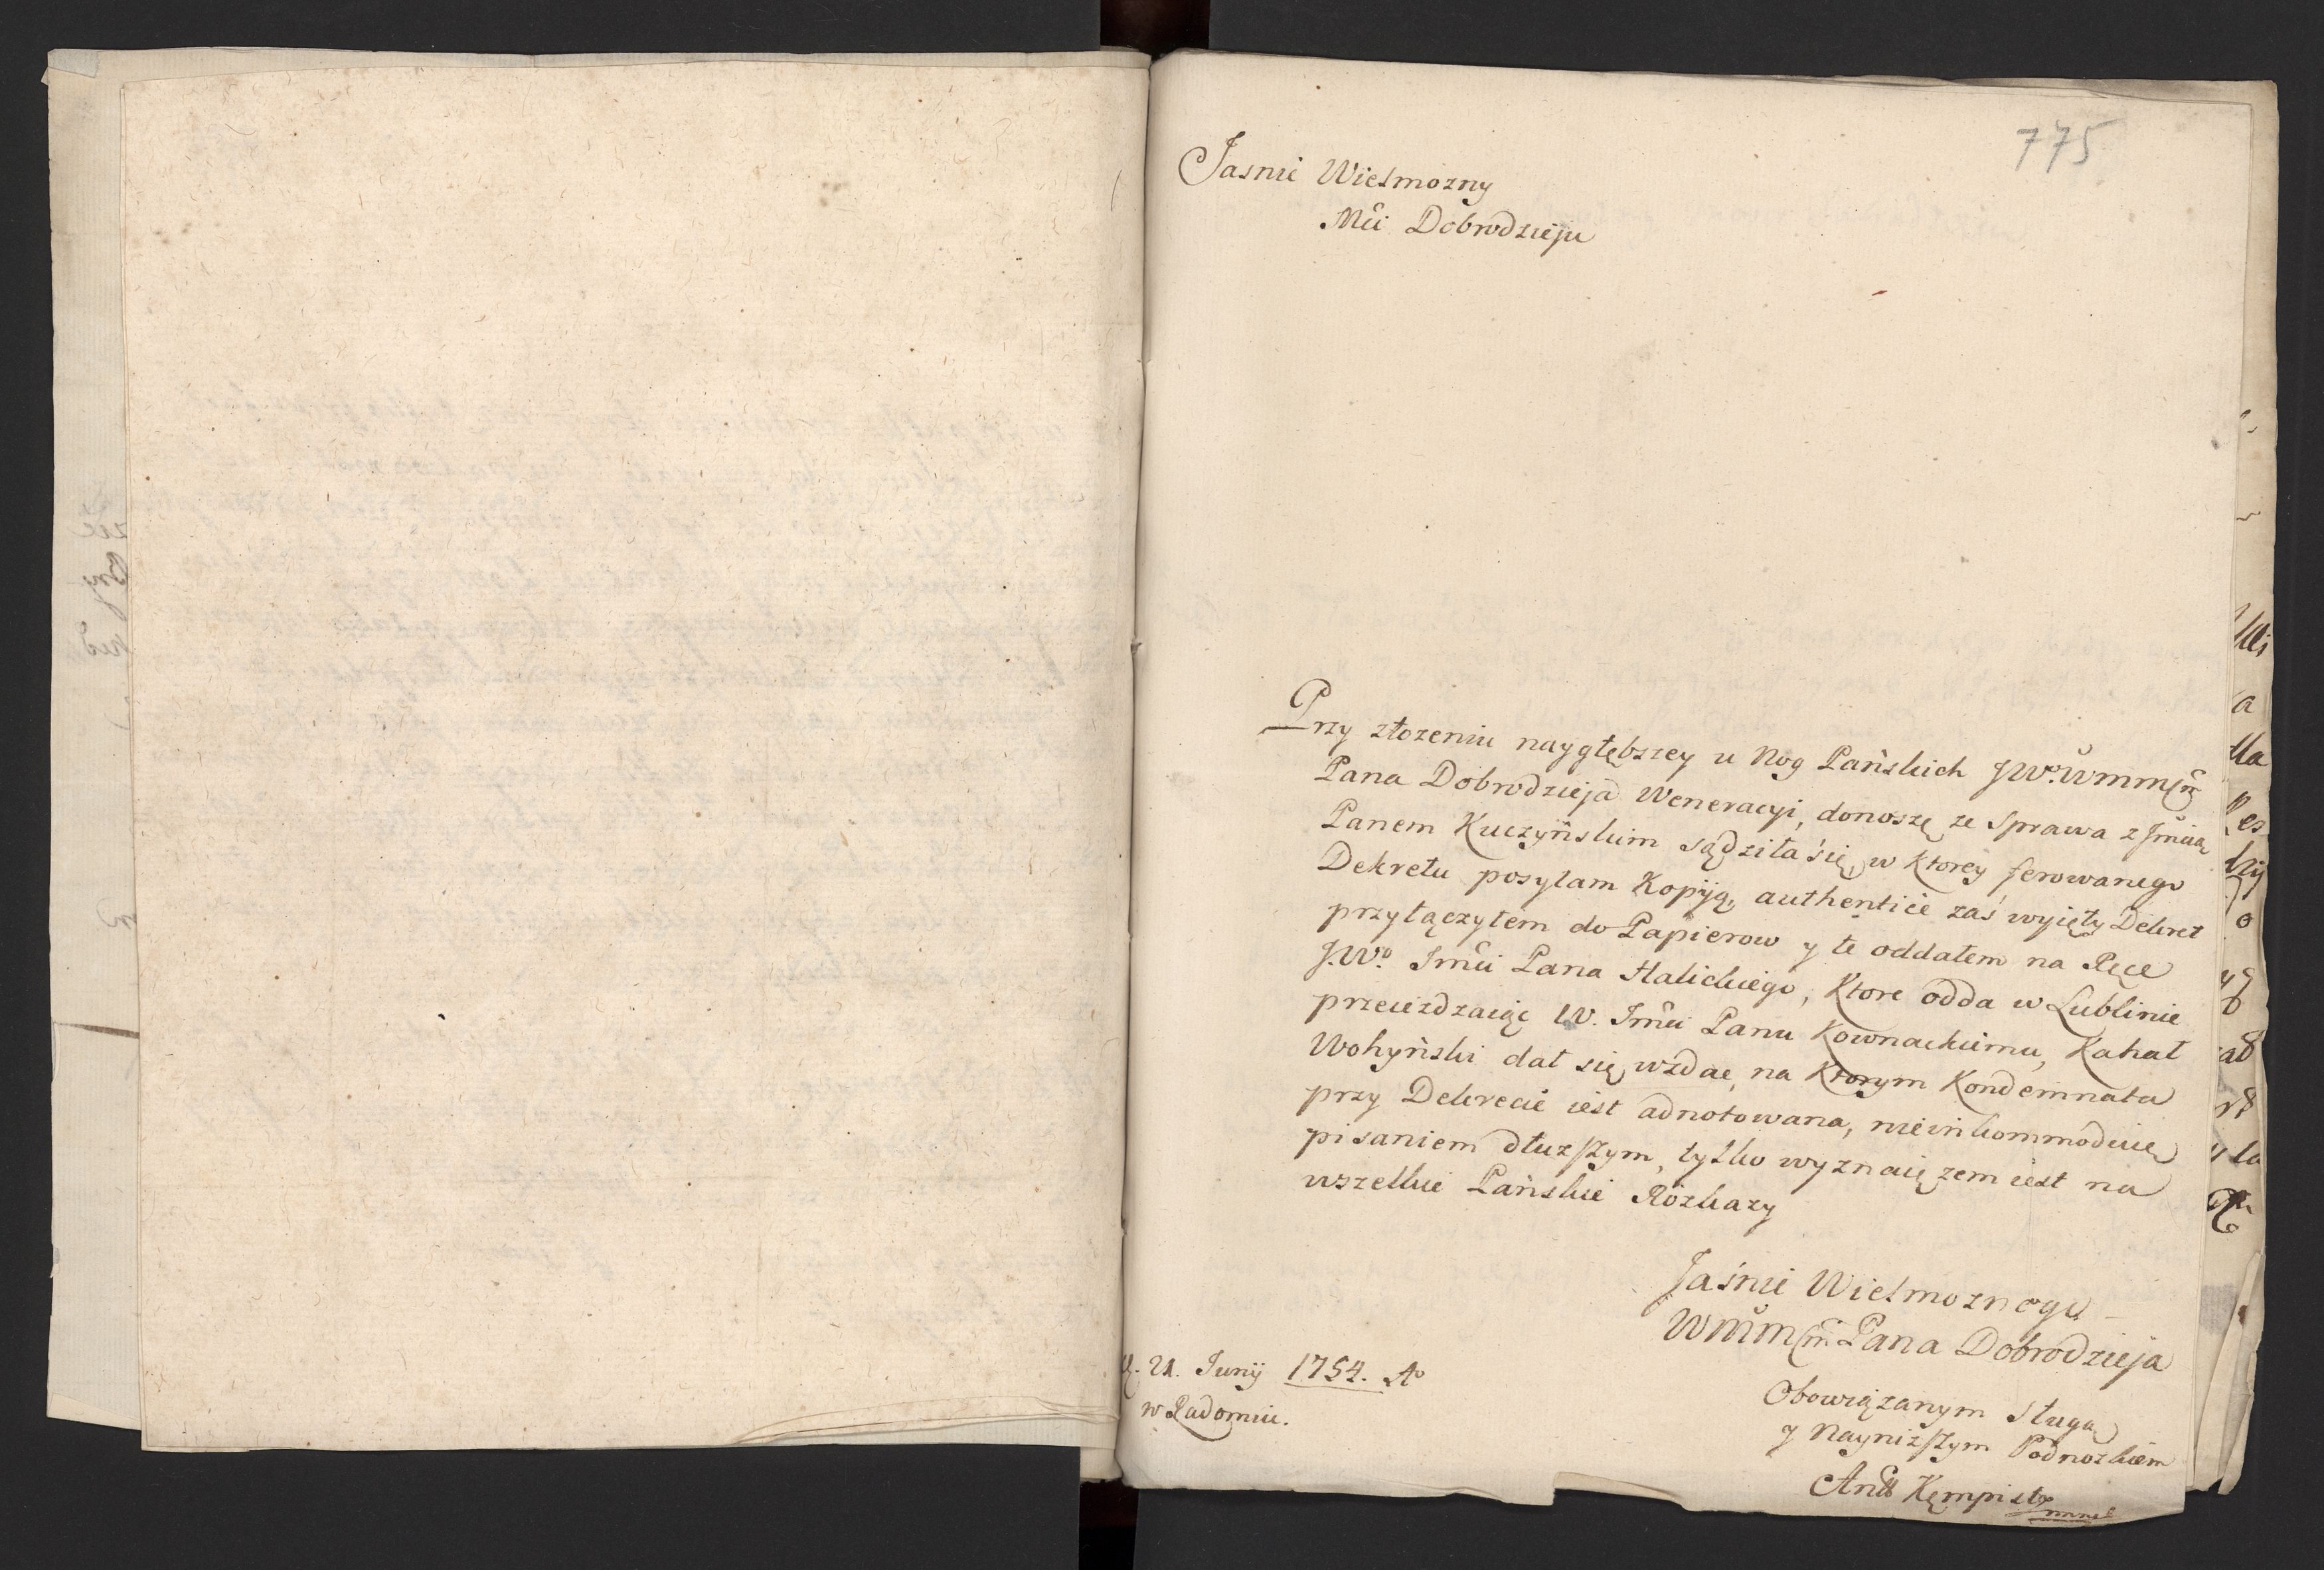 775
Jasnie Wielmozny
Mci Dobrodzieju
Przy złozeniu naygłębszey u Nog Pańskich JWo. Wmm
Pana Dobrodzieja Weneracyi, donoszę ze Sprawa z Jmcią
Panem Kuczyńskim sądziła się, w Ktorey ferowanego
Dekretu posyłam Kopiją, authentice zaś wyięty Dekret
przyłączyłem do Papierow y te oddałem na Ręce
J.Wo. Jmci Pana Halickiego, Ktore odda w Lublinie
przeiezdzaiąc W. Jmci Panu Kownackiemu, Kahał
Wohyński dał się wzdac, na Ktorym Kondemnata
przy Dekrecie iest adnotowana, nieinkommoduię
pisaniem dłuzszym, tylko wyznaię zem iest na
wszelkie Pańskie Rozkazy
Jaśnie Wielmoznego
Wmm Pana Dobrodzieja
d. 21. Junij 1754. Ao
w Radomiu.
Obowiązanym Sługą
y Nayniższym Podnozkiem
And Kęmpisty